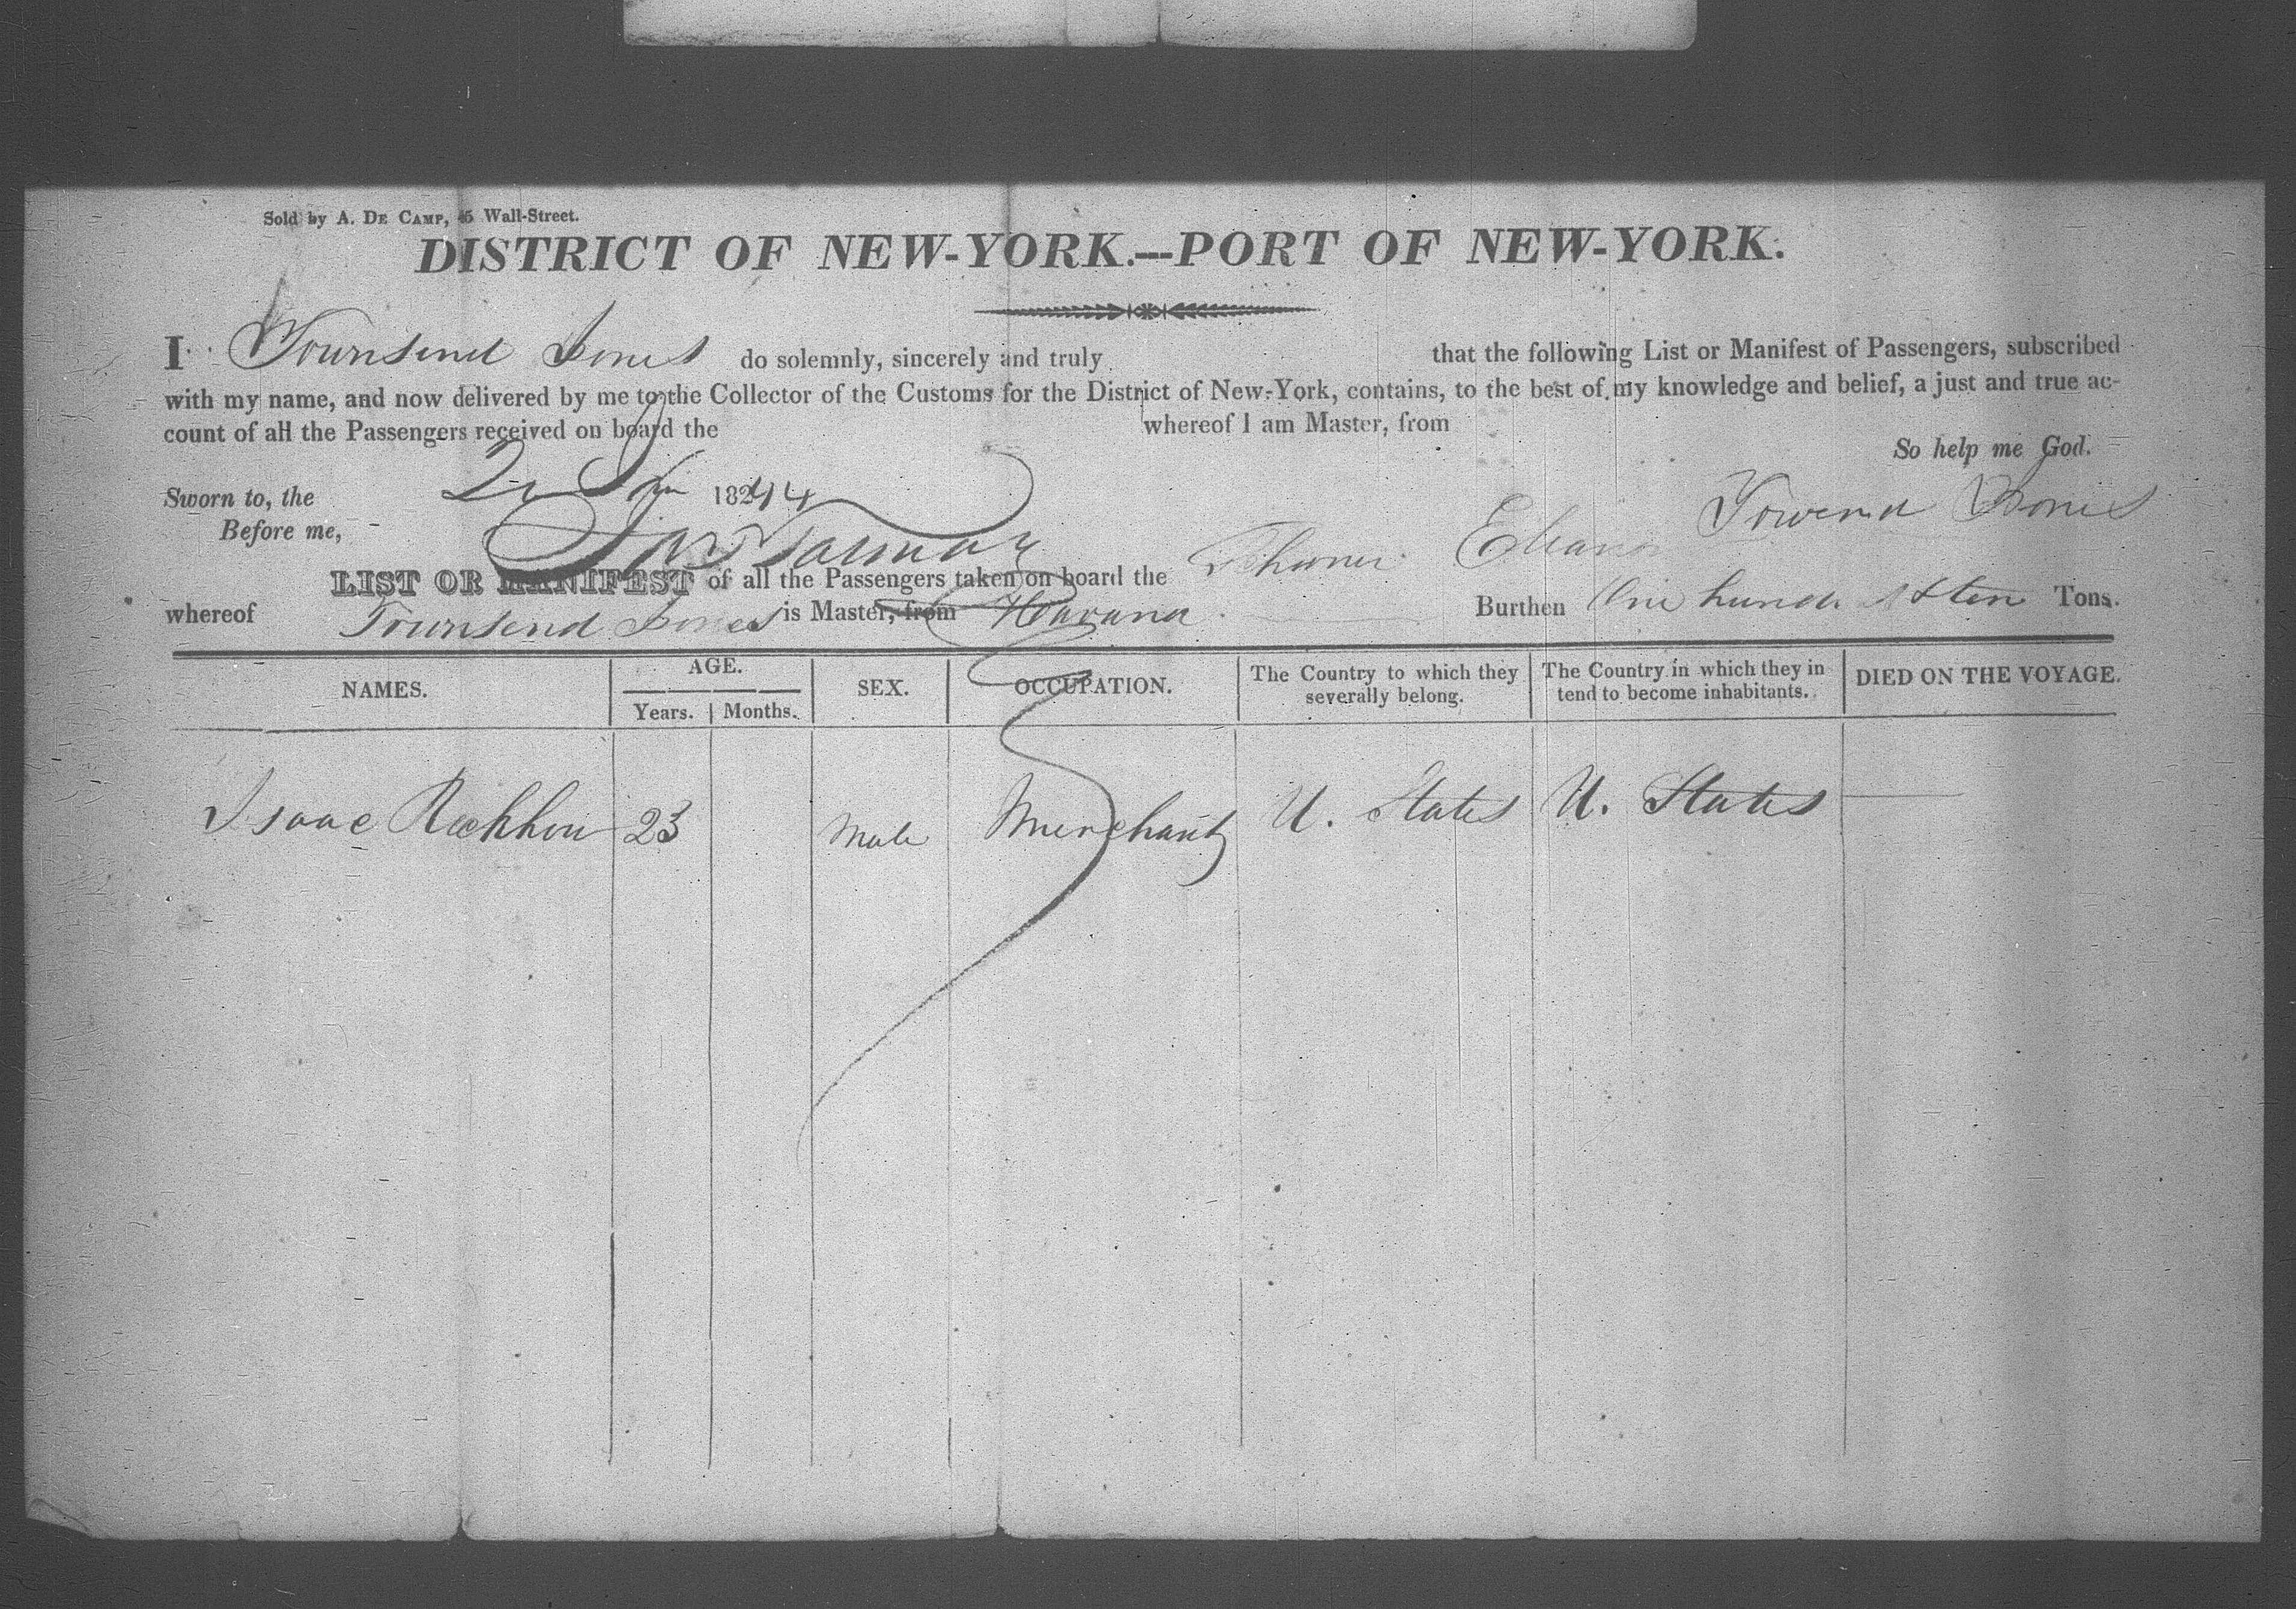 Sold by A. DE CAMP, 45 Wall-Street.
DISTRICT OF NEW-YORK.---PORT OF NEW-YORK.
I Townsend Jones do solemnly, sincerely and truly that the following List or Manifest of Passengers, subscribed
with my name, and now delivered by me to the Collector of the Customs for the District of New-York, contains, to the best of my knowledge and belief, a just and true ac-
count of all the Passengers received on board the whereof I am Master, from
So help me God.
Sworn to, the 182
Before me, Townsend Jones
LIST OR MANIFEST of all the Passengers taken on board the Schooner
whereof Townsend Jones is Master, from Havana Burthen One hund & ten Tons.
NAMES. AGE. Years. Months. SEX. OCCUPATION. The Country to which they severally belong. The Country in which they in tend to become inhabitants. DIED ON THE VOYAGE.
Isaac 23 Male Merchant U. States U. States